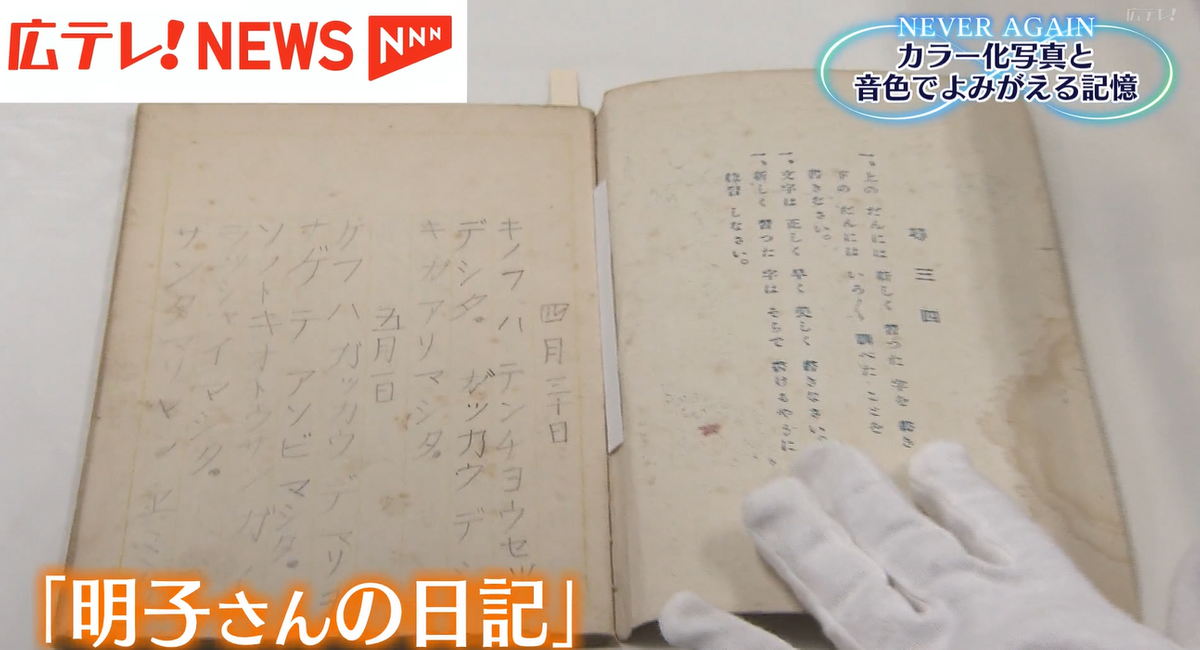 広テレ!NEWS NNN
広テレ!
NEVER AGAIN
カラー化写真と
音色でよみがえる記憶
尋三四
一、上の だんには 新しく 習つた 字を 書き
下の だんには いろ〱 調べた ことを
書きなさい。
一、文字は 正しく 早く 美しく 書きなさい。
一、新しく 習つた 字は そらで 書けるやうに
練習 しなさい。
四月三十日
キノフハ テンチヨウセツ
デシタ。ガッカウデ
キガアリマシタ。
五月一日
ケフハ ガッカウデ マリ
ナゲ テ アソビ マシタ。
ソノトキオトウサンガ
イマシタ。
サンタ
「明子さんの日記」